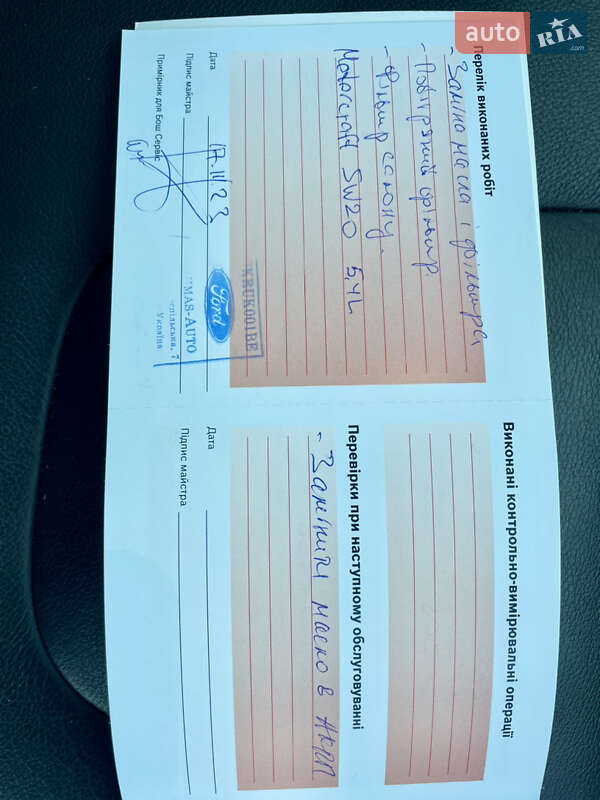 auto RIA .com
Перелік виконаних робіт
- Заміна масла і фільтра
- Повітряний фільтр.
- Фільтр салону.
Motorcraft 5W20 5,4L
KRUK001BE
Дата 17.11.23
Ford
Підпис майстра
MAS-AUTO
Примірник для Бош Сервіс
Україна
Виконані контрольно-вимірювальні операції
Перевірки при наступному обслуговуванні
- Замінити масло в АКПП
Дата
Підпис майстра